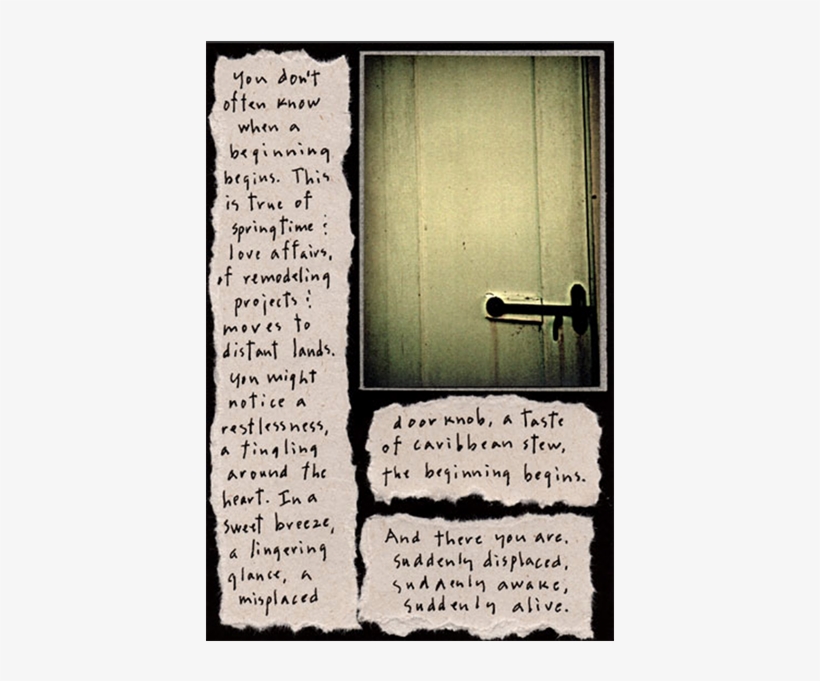 You don't
often know
when a
beginning
begins. This
is true of
springtime &
love affairs,
of remodeling
projects &
moves to
distant lands.
You might
notice a
restlessness,
a tingling
around the
heart. In a
sweet breeze,
a lingering
glance, a
misplaced
doorknob, a taste
of caribbean stew,
the beginning begins.
And there you are,
suddenly displaced,
suddenly awake,
suddenly alive.